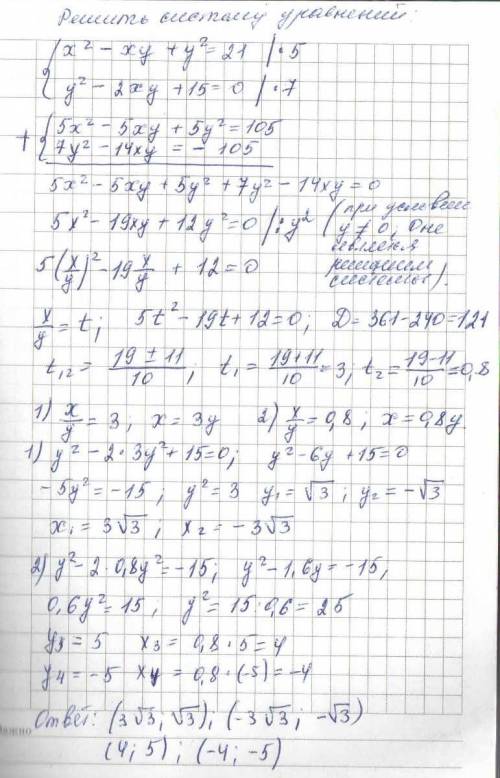 Решить систему уравнений:
{ x² - xy + y² = 21 | · 5
y² - 2xy + 15 = 0 | · 7
+ { 5x² - 5xy + 5y² = 105
7y² - 14xy = - 105
5x² - 5xy + 5y² + 7y² - 14xy = 0
5x² - 19xy + 12y² = 0 | : y² (при условии y ≠ 0, 0 не является решением системы).
5(x/y)² - 19 x/y + 12 = 0
x/y = t; 5t² - 19t + 12 = 0; D = 361 - 240 = 121
t₁,₂ = (19 ± 11)/10, t₁ = (19+11)/10 = 3, t₂ = (19-11)/10 = 0,8
1) x/y = 3; x = 3y 2) x/y = 0,8; x = 0,8y
1) y² - 2 · 3y² + 15 = 0; y² - 6y + 15 = 0
- 5y² = - 15; y² = 3 y₁ = √3; y₂ = - √3
x₁ = 3√3; x₂ = - 3√3
2) y² - 2 · 0,8y² = - 15; y² - 1,6y = - 15,
0,6y² = 15, y² = 15 : 0,6 = 25
y₃ = 5 x₃ = 0,8 · 5 = 4
y₄ = - 5 x₄ = 0,8 · (-5) = - 4
Ответ: (3√3, √3); (- 3√3; - √3)
(4; 5); (- 4; - 5)